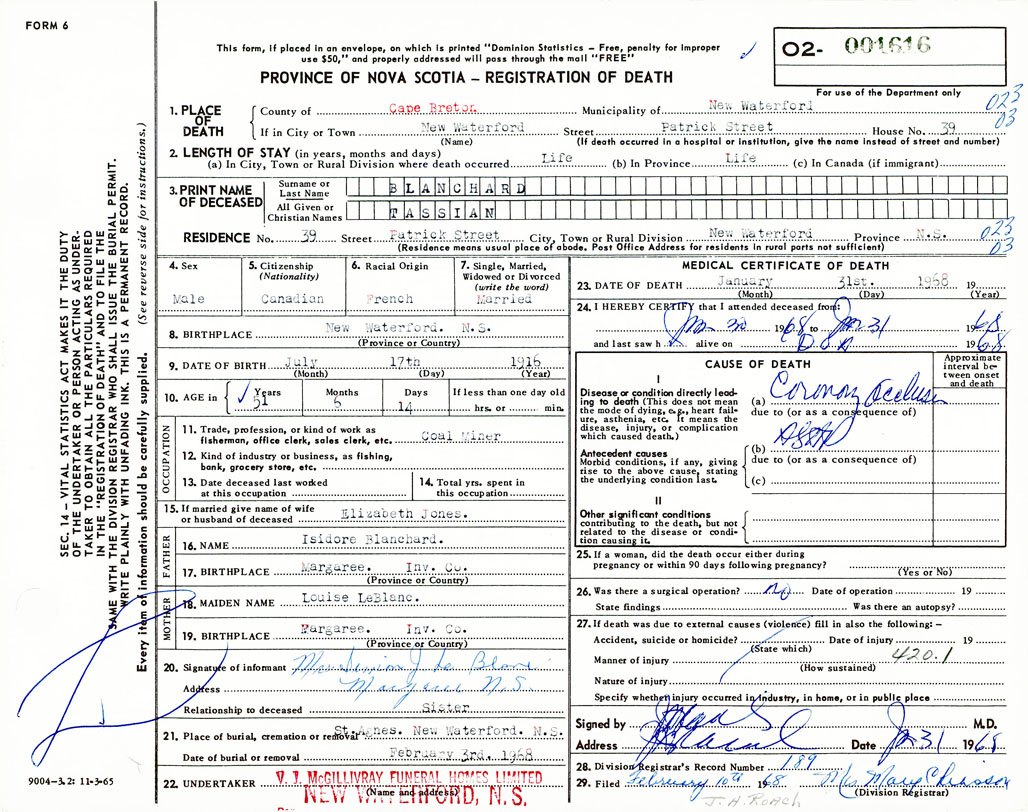 FORM 6
This form, if placed in an envelope, on which is printed "Dominion Statistics – Free, penalty for improper
use $50," and properly addressed will pass through the mail "FREE"
PROVINCE OF NOVA SCOTIA – REGISTRATION OF DEATH
O2- 001616
For use of the Department only
023
03
SEC. 14 – VITAL STATISTICS ACT MAKES IT THE DUTY
OF THE UNDERTAKER OR PERSON ACTING AS UNDER-
TAKER TO OBTAIN ALL THE PARTICULARS REQUIRED
IN THE "REGISTRATION OF DEATH" AND TO FILE THE
SAME WITH THE DIVISION REGISTRAR WHO SHALL ISSUE THE BURIAL PERMIT.
WRITE PLAINLY WITH UNFADING INK. THIS IS A PERMANENT RECORD.
Every item of information should be carefully supplied. (See reverse side for instructions.)
1. PLACE OF DEATH
County of Cape Breton Municipality of New Waterford
If in City or Town New Waterford Street Patrick Street House No. 39
(Name) (If death occurred in a hospital or institution, give the name instead of street and number)
2. LENGTH OF STAY (in years, months and days)
(a) In City, Town or Rural Division where death occurred Life (b) In Province Life (c) In Canada (if immigrant)
3. PRINT NAME OF DECEASED
Surname or Last Name BLANCHARD
All Given or Christian Names TASSIAN
RESIDENCE No. 39 Street Patrick Street City, Town or Rural Division New Waterford Province N.S.
023
03
(Residence means usual place of abode. Post Office Address for residents in rural parts not sufficient)
4. Sex
Male
5. Citizenship
(Nationality)
Canadian
6. Racial Origin
French
7. Single, Married,
Widowed or Divorced
(write the word)
Married
8. BIRTHPLACE New Waterford. N.S.
(Province or Country)
9. DATE OF BIRTH July 17th 1916
(Month) (Day) (Year)
10. AGE in Years Months Days If less than one day old
51 6 14 hrs. or min.
OCCUPATION
11. Trade, profession, or kind of work as
fisherman, office clerk, sales clerk, etc. Coal Miner
12. Kind of industry or business, as fishing,
bank, grocery store, etc.
13. Date deceased last worked
at this occupation
14. Total yrs. spent in
this occupation
15. If married give name of wife
or husband of deceased Elizabeth Jones.
FATHER
16. NAME Isidore Blanchard.
17. BIRTHPLACE Margaree. Inv. Co.
(Province or Country)
MOTHER
18. MAIDEN NAME Louise LeBlanc.
19. BIRTHPLACE Margaree. Inv. Co.
(Province or Country)
20. Signature of informant Mrs J Le Blanc
Address Margaree N.S.
Relationship to deceased Sister
21. Place of burial, cremation or removal St. Agnes. New Waterford. N.S.
Date of burial or removal February 3rd. 1968
22. UNDERTAKER V. J. McGILLIVRAY FUNERAL HOMES LIMITED
(Name and address)
NEW WATERFORD, N.S.
9004–3.2: 11-3-65
MEDICAL CERTIFICATE OF DEATH
23. DATE OF DEATH January 31st. 1968 19
(Month) (Day) (Year)
24. I HEREBY CERTIFY that I attended deceased from:
Jan 30 1968 to Jan 31 1968
and last saw h alive on D.O.A 1968
CAUSE OF DEATH
Approximate
interval be-
tween onset
and death
I
Disease or condition directly lead-
ing to death (This does not mean
the mode of dying, e.g., heart fail-
ure, asthenia, etc. It means the
disease, injury, or complication
which caused death.)
(a) Coronary Occlusion
due to (or as a consequence of)
Antecedent causes
Morbid conditions, if any, giving
rise to the above cause, stating
the underlying condition last.
(b)
due to (or as a consequence of)
(c)
II
Other significant conditions
contributing to the death, but not
related to the disease or condi-
tion causing it.
25. If a woman, did the death occur either during
pregnancy or within 90 days following pregnancy?
(Yes or No)
26. Was there a surgical operation? no Date of operation 19
State findings Was there an autopsy?
27. If death was due to external causes (violence) fill in also the following: –
Accident, suicide or homicide? Date of injury 19
(State which)
420.1
Manner of injury
(How sustained)
Nature of injury
Specify whether injury occurred in industry, in home, or in public place
Signed by M.D.
Address Date Jan 31 1968
28. Division Registrar's Record Number 189
29. Filed February 10th 1968 Mrs Mary Chiasson
(Division Registrar)
J. H. ROACH